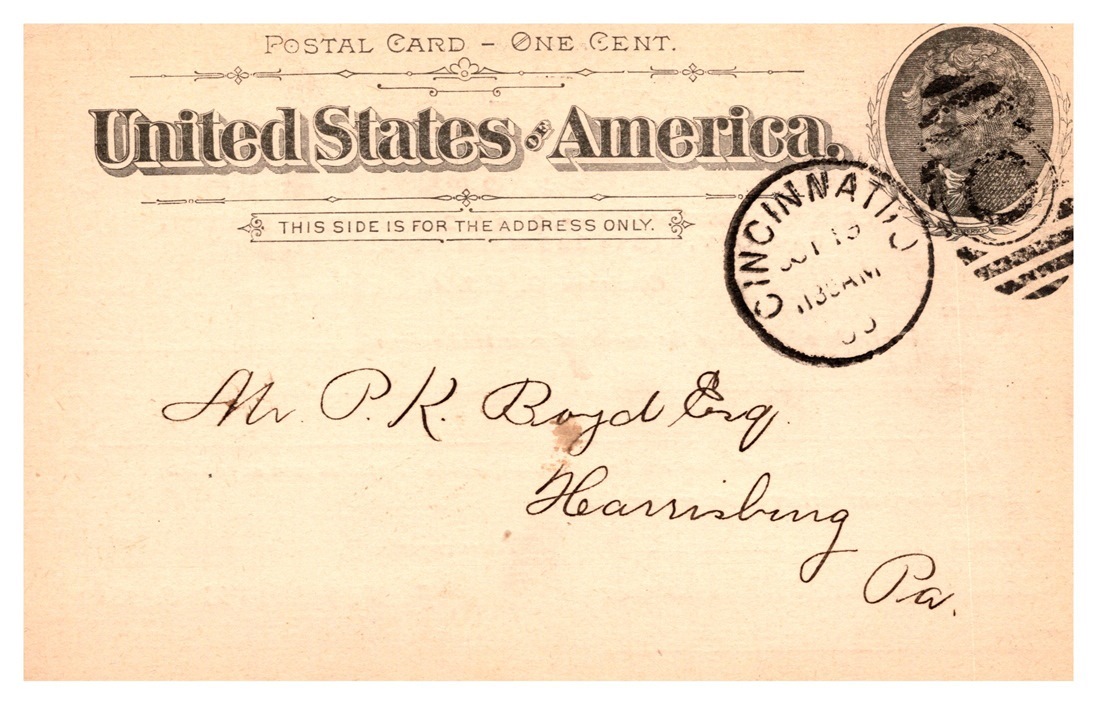 POSTAL CARD - ONE CENT.
United States OF America.
THIS SIDE IS FOR THE ADDRESS ONLY.
CINCINNATI, O
OCT 19
1130AM
Mr. P. K. Boyd Esq.
Harrisburg
Pa.